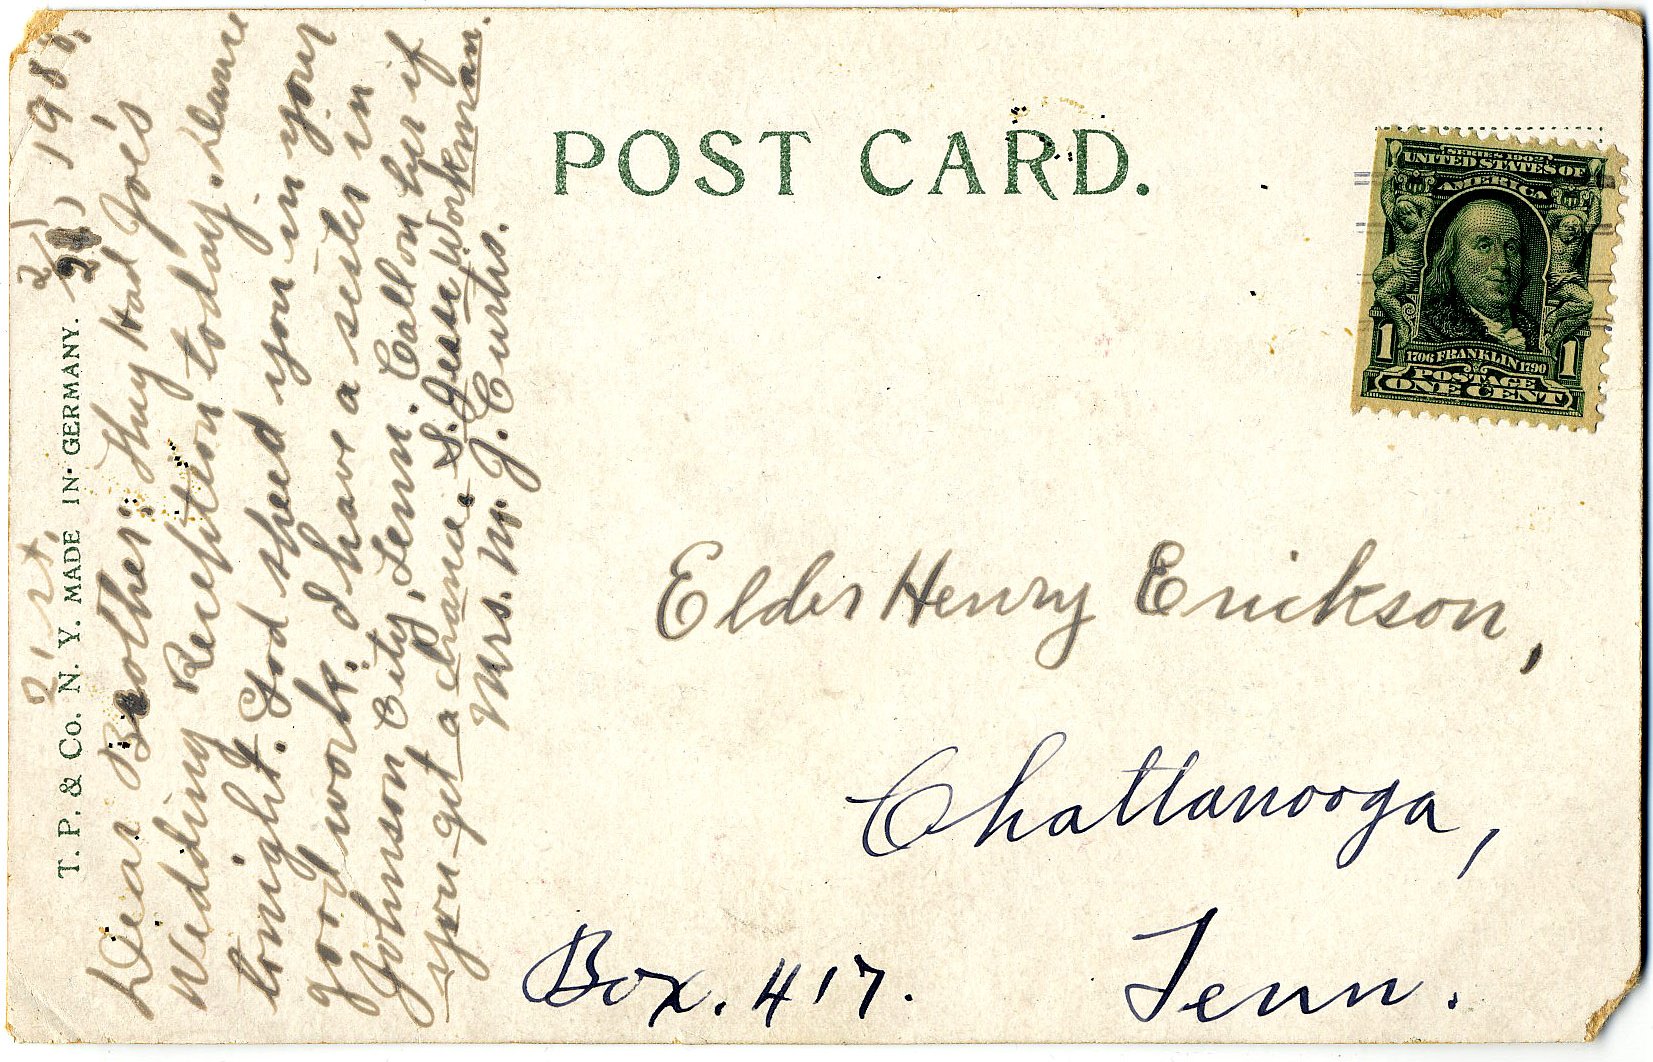 2/21, 1908.
T. P. & Co. N. Y. MADE IN GERMANY.
Dear Brother: they Had Joe's
Wedding Reception today. Dance
tonight. God speed you in your
good work. I have a sister in
Johnson City, Tenn. Call on her if
you get a chance S. Jesse Workman.
Mrs. W. J. Curtis.
POST CARD.
SERIES 1902
UNITED STATES OF
AMERICA
1 1706 FRANKLIN 1790 1
POSTAGE
ONE CENT
Elder Henry Erickson,
Chattanooga,
Box. 417. Tenn.